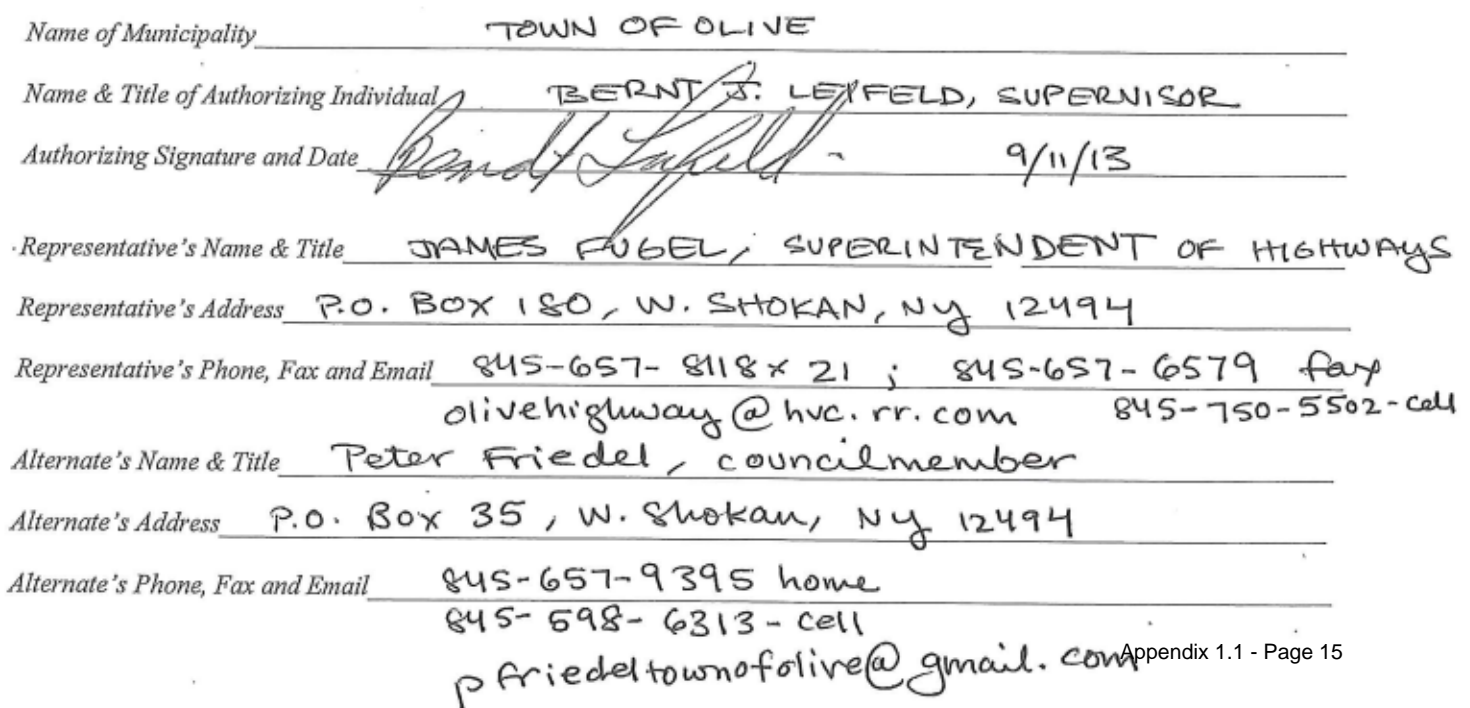 Name of Municipality TOWN OF OLIVE
Name & Title of Authorizing Individual BERNT J. LEIFELD, SUPERVISOR
Authorizing Signature and Date Berndt Leifeld 9/11/13
Representative's Name & Title JAMES FUGEL, SUPERINTENDENT OF HIGHWAYS
Representative's Address P.O. BOX 180, W. SHOKAN, NY 12494
Representative's Phone, Fax and Email 845-657-8118 x 21 ; 845-657-6579 fax
olivehighway@hvc.rr.com 845-750-5502-cell
Alternate's Name & Title Peter Friedel, councilmember
Alternate's Address P.O. Box 35, W. Shokan, NY 12494
Alternate's Phone, Fax and Email 845-657-9395 home
845-598-6313-cell
pfriedeltownofolive@gmail.com
Appendix 1.1 - Page 15